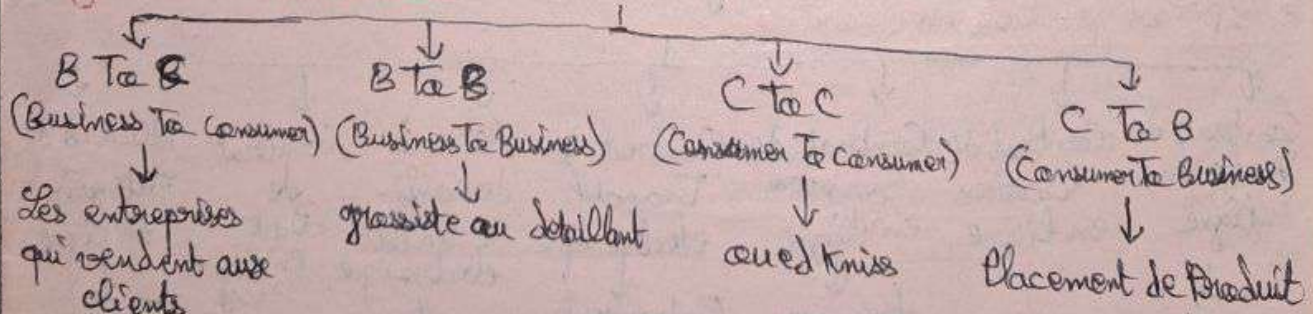 B To C
(Business To Consumer)
Les entreprises
qui vendent aux
clients
B To B
(Business To Business)
grossiste au détaillant
C To C
(Consumer To consumer)
oued Kniss
C To B
(Consumer To Business)
Placement de Produit